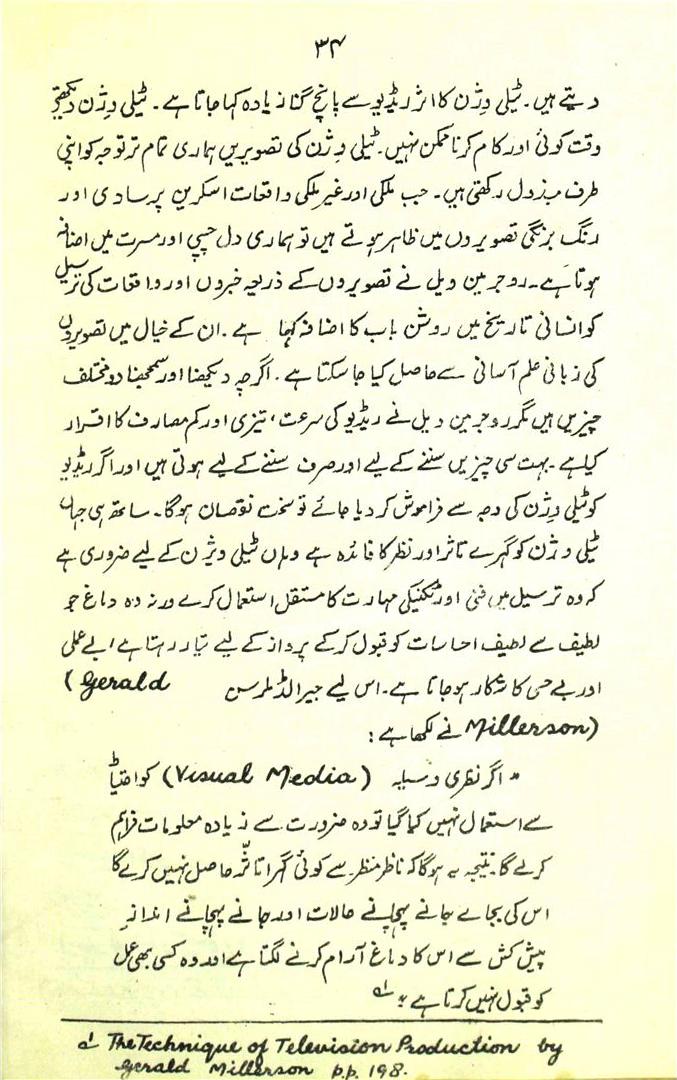 ۳۴
دیتے ہیں۔ ٹیلی وِژن کا اثر ریڈیو سے پانچ گنا زیادہ کہا جاتا ہے۔ ٹیلی وِژن دیکھتے
وقت کوئی اور کام کرنا ممکن نہیں۔ ٹیلی وِژن کی تصویریں ہماری تمام تر توجہ کو اپنی
طرف مبذول رکھتی ہیں۔ جب ملکی اور غیر ملکی واقعات اسکرین پر سادی اور
رنگ برنگی تصویروں میں ظاہر ہوتے ہیں تو ہماری دل چسپی اور مسرت میں اضافہ
ہوتا ہے۔ روجر مین ویل نے تصویروں کے ذریعہ خبروں اور واقعات کی ترسیل
کو انسانی تاریخ میں روشن باب کا اضافہ کہا ہے۔ ان کے خیال میں تصویروں
کی زبانی علم آسانی سے حاصل کیا جا سکتا ہے۔ اگرچہ دیکھنا اور سمجھنا دو مختلف
چیزیں ہیں مگر روجر مین ویل نے ریڈیو کی سرعت، تیزی اور کم مصارف کا اقرار
کیا ہے۔ بہت سی چیزیں سننے کے لیے اور صرف سننے کے لیے ہوتی ہیں اور اگر ریڈیو
کو ٹیلی وِژن کی وجہ سے فراموش کر دیا جائے تو سخت نقصان ہوگا۔ ساتھ ہی جہاں
ٹیلی وژن کو گہرے تاثر اور نظر کا فائدہ ہے وہاں ٹیلی ویژن کے لیے ضروری ہے
کہ وہ ترسیل میں فنی اور تکنیکی مہارت کا مستقل استعمال کرے ورنہ وہ دماغ جو
لطیف سے لطیف احساسات کو قبول کرکے پرواز کے لیے تیار رہتا ہے، بے عملی
اور بے حسی کا شکار ہو جاتا ہے۔ اس لیے جیرالڈ ملرسن (Gerald
Millerson) نے لکھا ہے:
" اگر نظری وسیلہ (Visual Media) کو احتیاط
سے استعمال نہیں کیا گیا تو وہ ضرورت سے زیادہ معلومات فراہم
کرلے گا۔ نتیجہ یہ ہوگا کہ ناظر منظر سے کوئی گہرا تاثّر حاصل نہیں کرے گا
اس کی بجاے جانے پہچانے حالات اور جانے پہچانے اندازِ
پیش کش سے اس کا دماغ آرام کرنے لگتا ہے اور وہ کسی بھی عمل
کو قبول نہیں کرتا ہے " ۱؎
۱؎ The Technique of Television Production by
Gerald Millerson p.p. 198.